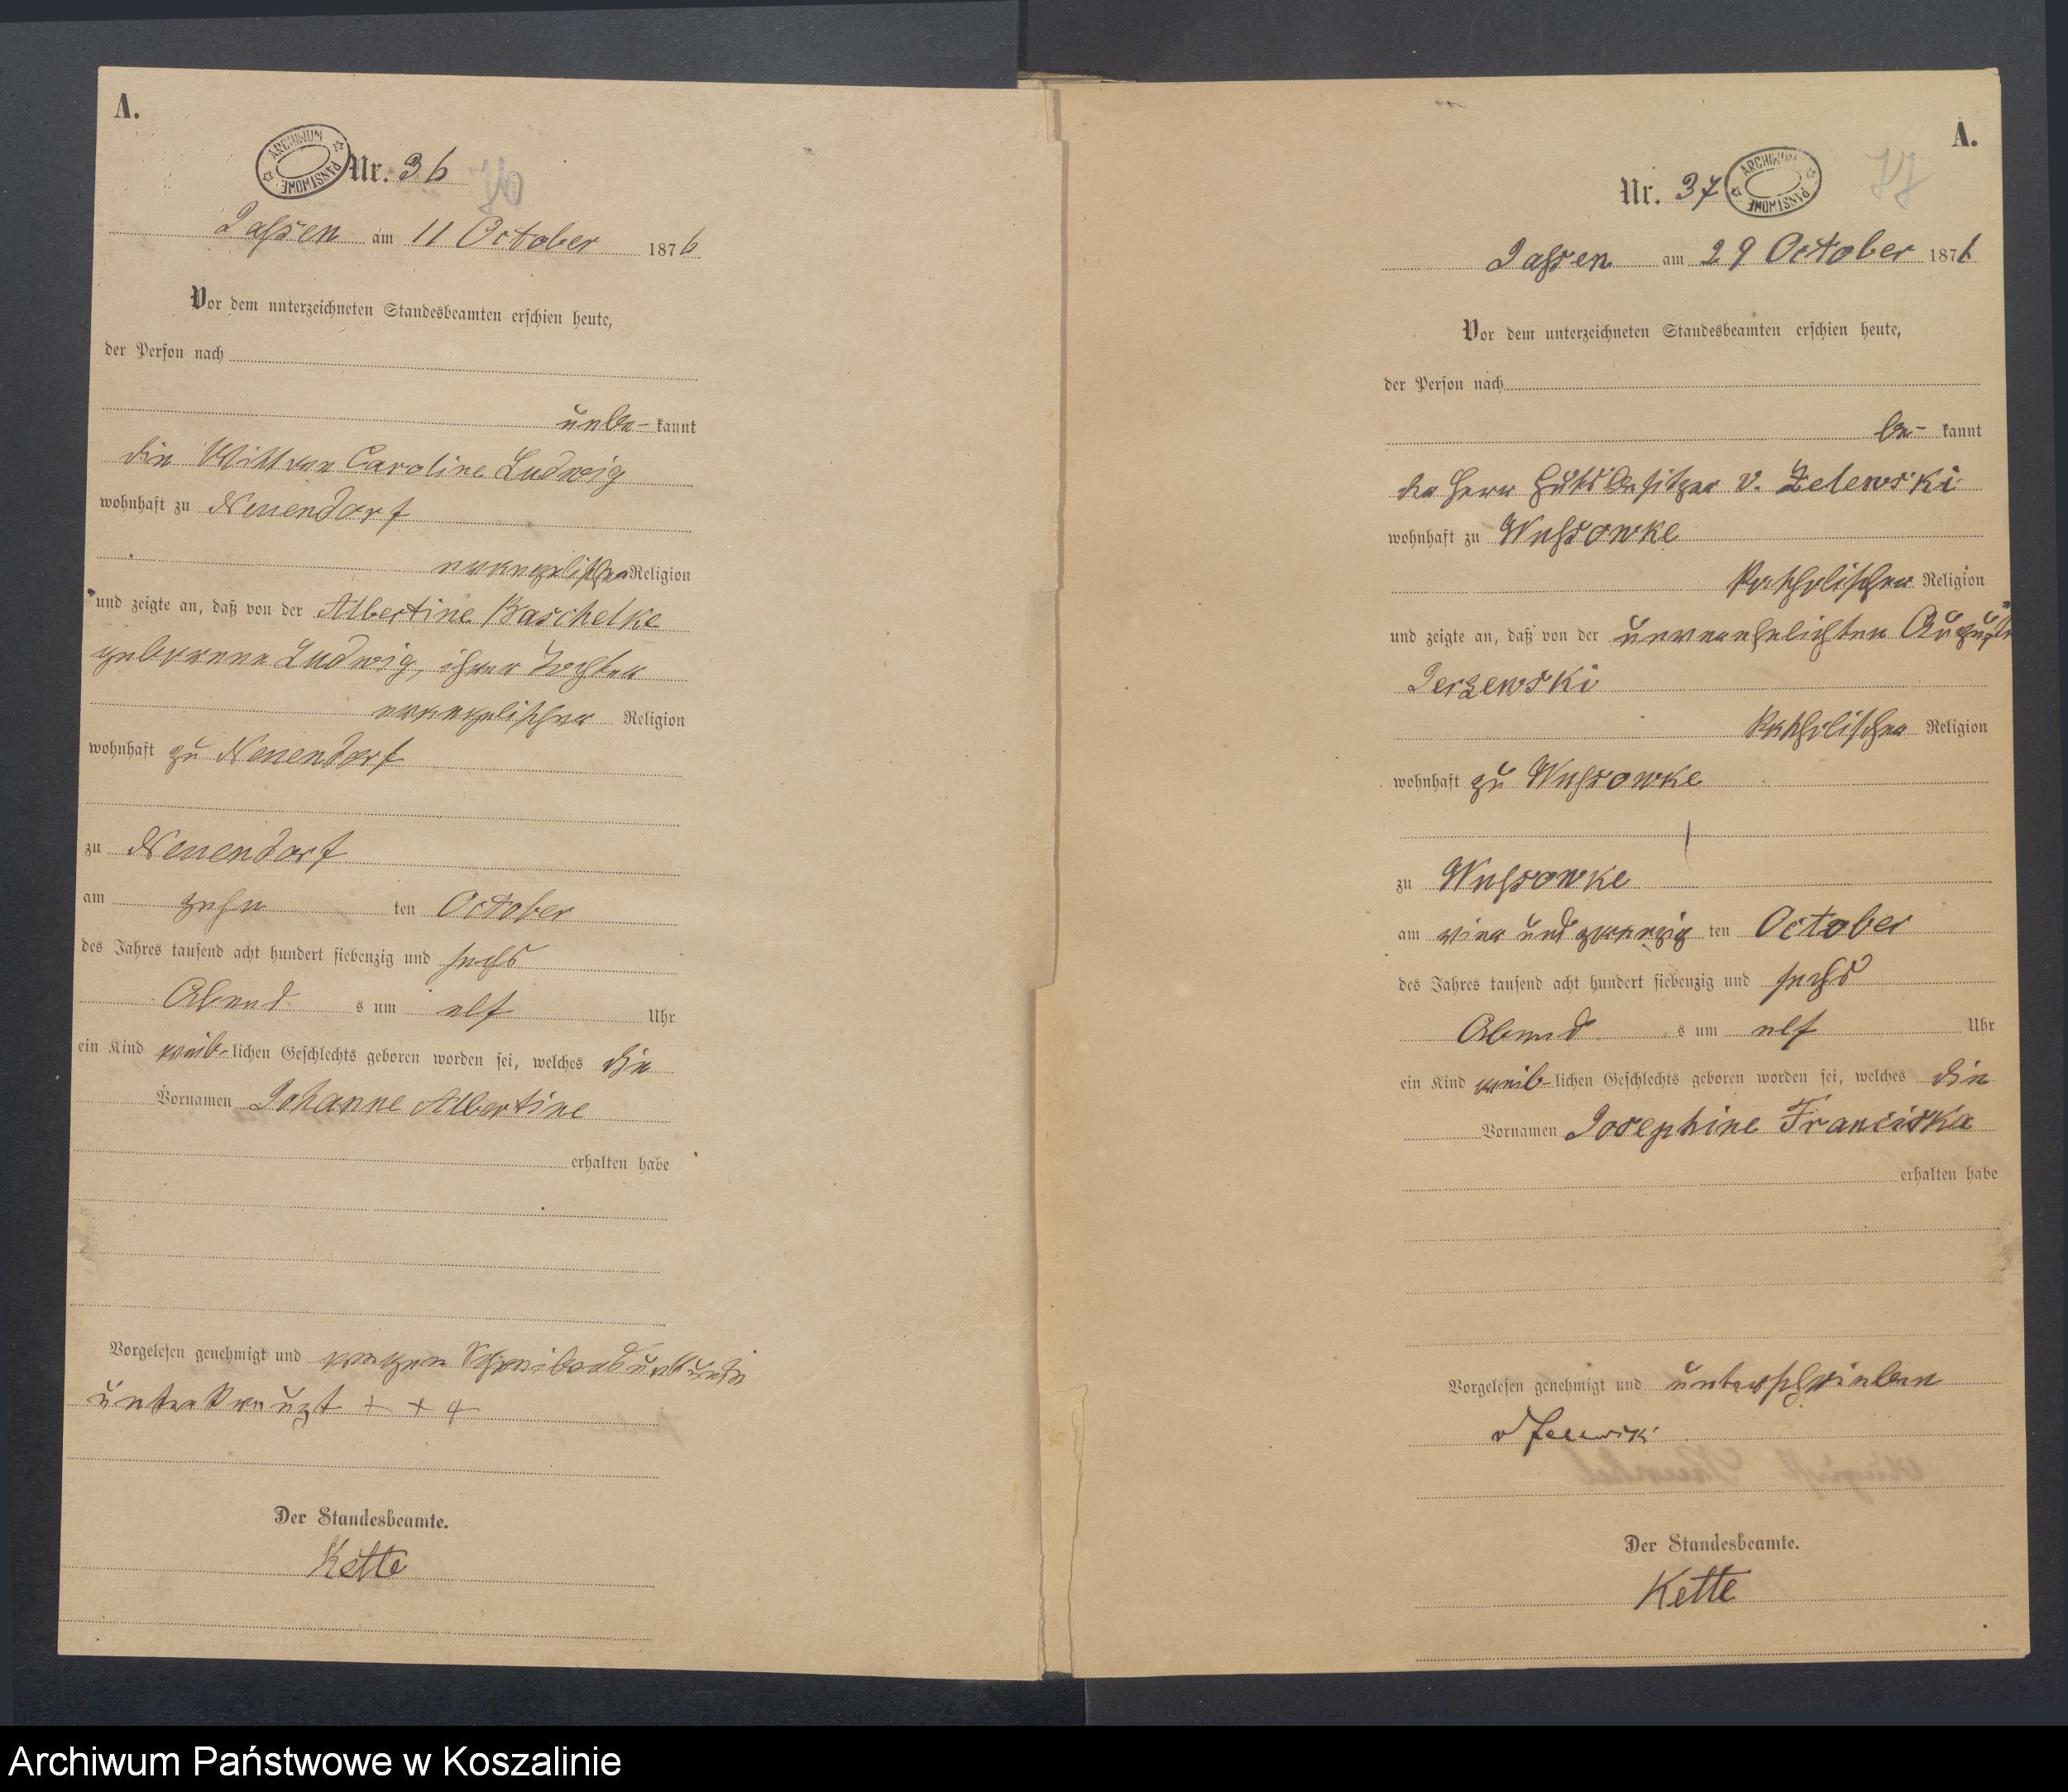 A.
ARCHIWUM PAŃSTWOWE
Nr. 36
Jassen am 11 October 1876
Vor dem unterzeichneten Standesbeamten erschien heute,
der Person nach
unbe- kannt
die Wittwe Caroline Ludwig
wohnhaft zu Neuendorf
evangelischer Religion
und zeigte an, daß von der Albertine Baschelke
geborene Ludwig, ihrer Tochter
evangelischer Religion
wohnhaft zu Neuendorf
zu Neuendorf
am zehn ten October
des Jahres tausend acht hundert siebenzig und sechs
Abend s um elf Uhr
ein Kind weib- lichen Geschlechts geboren worden sei, welches die
Vornamen Johanne Albertine
erhalten habe
Vorgelesen genehmigt und wegen Schreibensunkunde
unterkreuzt + + +
Der Standesbeamte.
Kette
A.
Nr. 37
ARCHIWUM PAŃSTWOWE
Jassen am 29 October 1876
Vor dem unterzeichneten Standesbeamten erschien heute,
der Person nach
be- kannt
der Herr Gutsbesitzer v. Zelewski
wohnhaft zu Wussowke
katholischer Religion
und zeigte an, daß von der unverehelichten Auguste
Jerzewski
katholischer Religion
wohnhaft zu Wussowke
zu Wussowke
am vier und zwanzig ten October
des Jahres tausend acht hundert siebenzig und sechs
Abend s um elf Uhr
ein Kind weib- lichen Geschlechts geboren worden sei, welches die
Vornamen Josephine Franciska
erhalten habe
Vorgelesen genehmigt und unterschrieben
Der Standesbeamte.
Kette
Archiwum Państwowe w Koszalinie